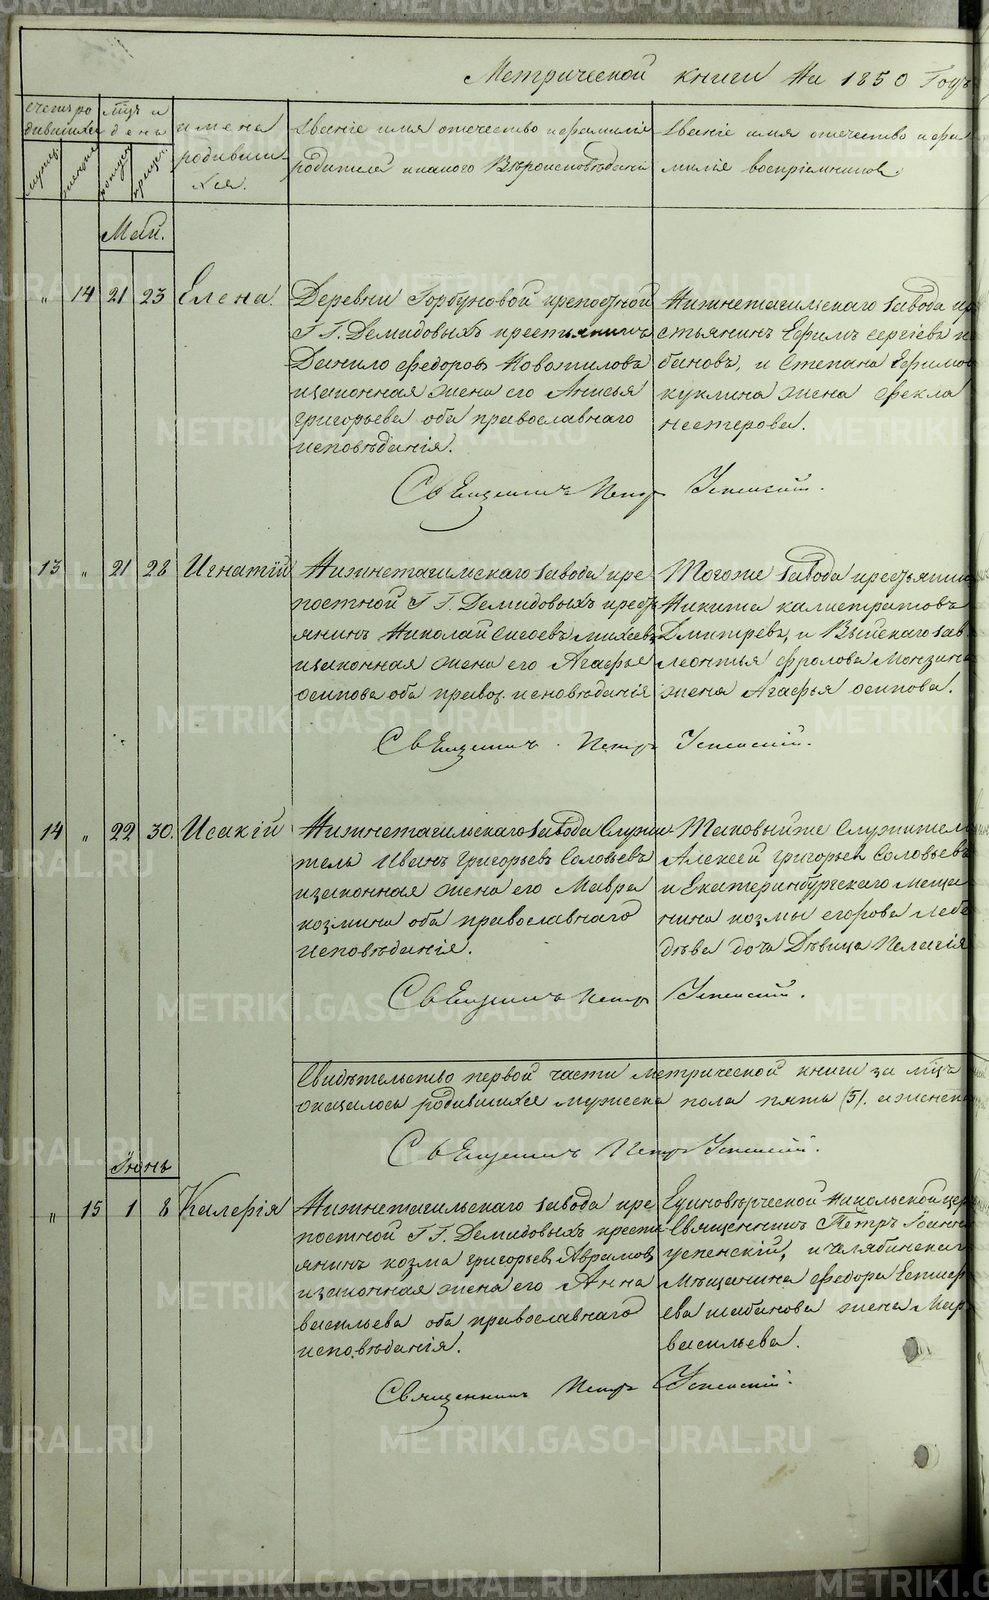 Метрической книги на 1850 Годъ
счетъ ро
дившихся
мужеск.
женска
мѣц и
день
рожден
крещен.
имена
родивши
хся.
Званіе имя отечество и фамиліе
родителей и какого Вѣроисповѣданія
Званіе имя отечество и фа
миліе воспріемниковъ
Май.
" 14 21 23 Елена.
Деревни Горбуновой крепостной
Г.Г. Демидовыхъ крестьянинъ
Данило Федоровъ Новожиловъ
и законная жена его Анисья
григорьева оба православнаго
исповѣданія.
Нижнетагильскаго завода кр
стьянинъ Ефимъ сергіевъ
бановъ, и Степана Ефимов
куклина жена фекла
нестерова.
Священникъ Петръ Успенскій.
13 " 21 28 Игнатій
Нижнетагильскаго завода кре
постной Г.Г. Демидовыхъ крестъ
янинъ Николай Сисоевъ михеевъ
и законная жена его Агафья
осипова оба правос. исповѣданія
Тогоже завода крестьянинъ
Никита калистратовъ
Дмитревъ, и Выйскаго зав.
леонтья фролова Монзина
жена Агафья осипова.
Священникъ Петръ Успенскій.
14 " 22 30. Исакій
Нижнетагильскаго завода Служи
тель Иванъ григорьевъ Соловьевъ
и законная жена его Мавра
козмина оба православнаго
исповѣданія.
Таковыйже Служитель
Алексей григорьев Соловьевъ
и Екатеринбургскаго меща
нина козмы егорова лебе
дѣва дочь Дѣвица Пелагія
Священникъ Петръ Успенскій.
Свидѣтельство первой части метрической книги за мѣцъ
оказалось родившихся мужеска пола пять (5). и женска
Священникъ Петръ Успенскій.
Іюнь
" 15 1 8 Калерія
Нижнетагильскаго завода кре
постной Г.Г. Демидовыхъ крестъ
янинъ козма григорьевъ Аврамовъ,
и законная жена его Анна
васильева оба православнаго
исповѣданія.
Единовѣрческой Никольской цер
Священникъ Петръ Іоанно
успенскій, и челябинскаг
Мѣщанина федора
ева шабанова жена Мар
васильева.
Священникъ Петръ Успенскій.
METRIKI.GASO-URAL.RU